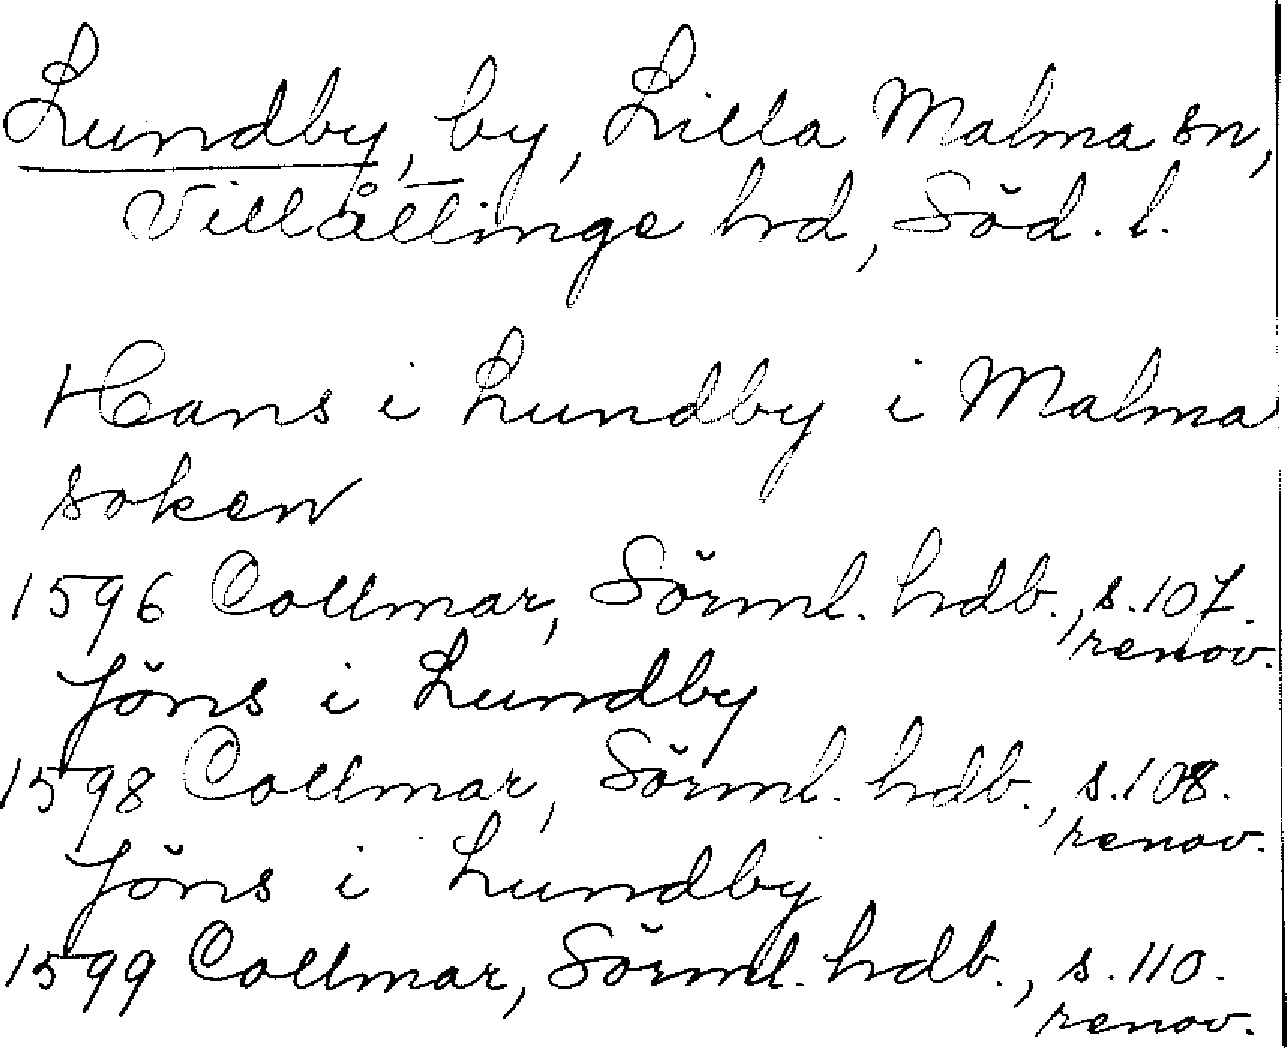 Lundby, by, Lilla Malma sn,
Villåttinge hrd, Söd. l.
Hans i Lundby i Malma
soken
1596 Collmar, Sörml. hdb., s. 107.
renov.
Jöns i Lundby
1598 Collmar, Sörml. hdb., s. 108.
renov.
Jöns i Lundby
1599 Collmar, Sörml. hdb., s. 110.
renov.